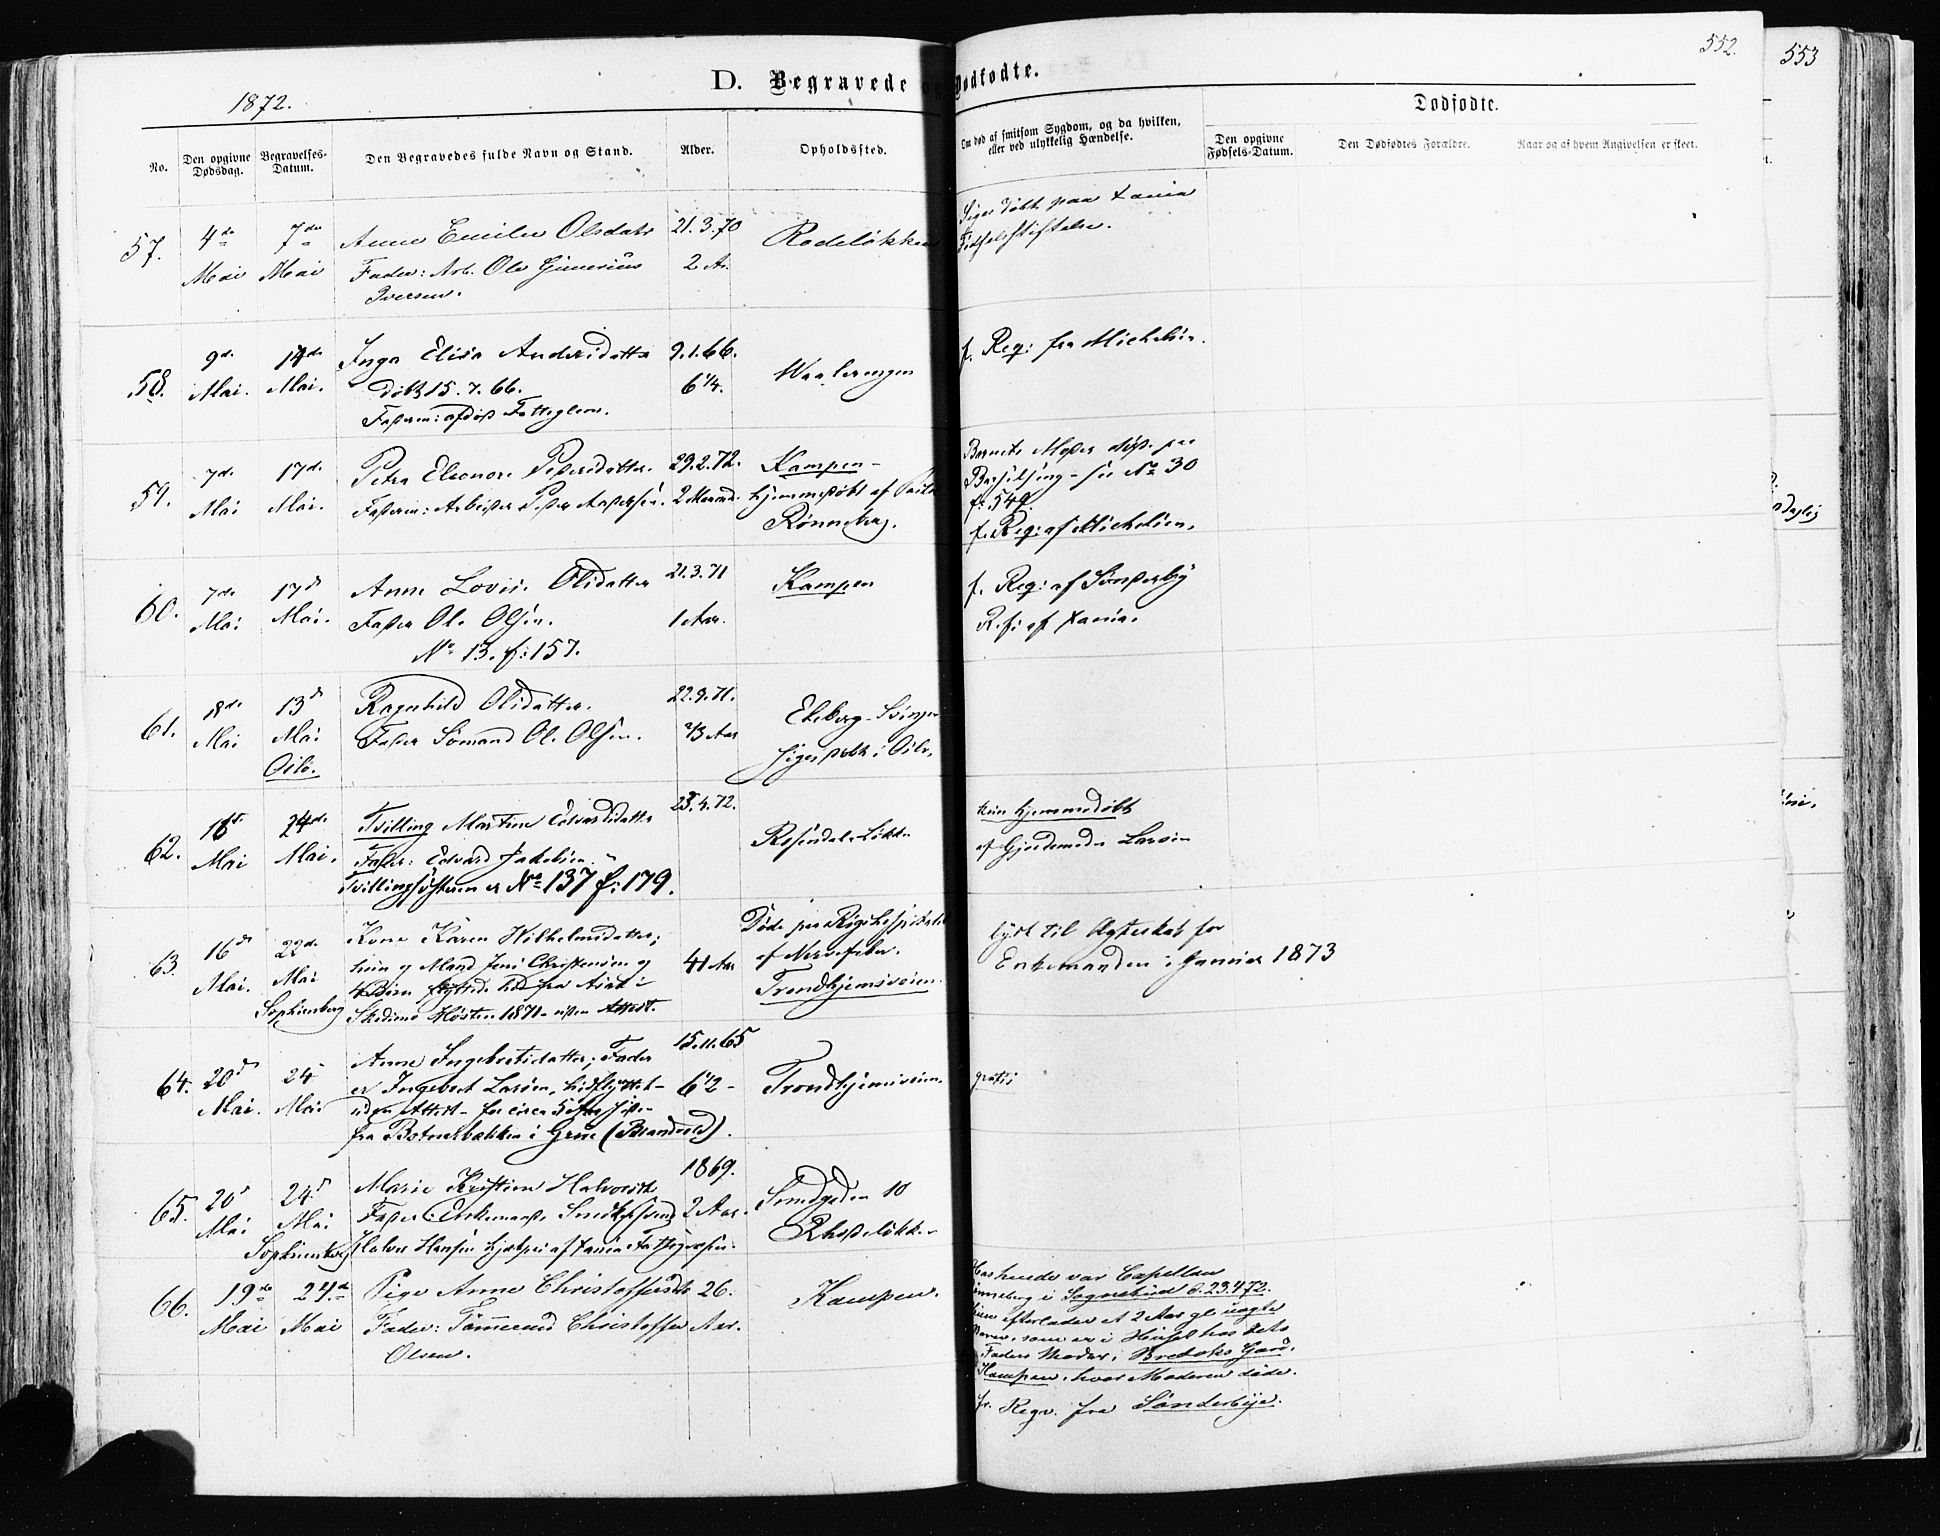 552.
553
1872.
D. Begravede og Dødfødte.
Dødfødte.
No.
Den opgivne Dødsdag.
Begravelses-Datum.
Den Begravedes fulde Navn og Stand.
Alder.
Opholdssted.
Om død af smitsom Sygdom, og da hvilken,
eller ved ulykkelig Hændelse.
Den opgivne Fødsels-Datum.
Den Dødfødtes Forældre.
Naar og af hvem Angivelsen er skeet.
57. 4de Mai 7de Mai
Anne Emilie Olsdatr 21.3.70
Fader: Arb. Ole Gunerius 2 Ar.
Iversen.
Rodeløkken
Siges døbt paa Xania
Fødselsstiftelse.
58. 9de Mai. 14de Mai.
Inga Elisa Andersdatter 9.1.66.
døbt 15.7.66. 6 1/4.
Faderen: afdøst
Waalerengen
f. Reg: fra Michelsen.
59. 7de Mai 17de Mai.
Petra Eleonore Pedersdatter. 29.2.72.
Faderen: Arbeider Peder 2 Maand.
Kampen -
hjemmedøbt af
Rønneberg.
Barnets Moder døde paa
- see No 30
f. 549
f. Reg: af Michelsen.
60. 7de Mai 17d Mai.
Anne Lovise Olsdatter 21.3.71
Fader Ole Olsen. 1 Aar.
No 13. f: 157.
Kampen
f. Reg: af Sønderby
R. f: af Xania.
61. 18de Mai 13d Mai
Oslo.
Ragnhild Olsdatter. 22.9.71.
Fader Sømand Ole Olsen. 2/3 Aar
Ekeberg-
siges døbt i Oslo.
62. Mai 24de Mai.
Tvilling Martine Edvardsdatter 23.4.72.
Fader: Edvard Jakobsen.
Tvillingsøsteren er No 137 f: 179.
Rosendals Løkke
kun hjemmedøbt
af Gjordemoder Larsen
63. 16d Mai. 22de Mai
Sophienberg
Kone Karen Wilhelmsdatter;
hun og Mand Jens Christensen og 41 Aar
4 Børn flyttede hid fra
Skedsmo Høsten 1871 - uden Attest.
Døde paa Rigshospitalet
af Nervefeber.
Trondhjemsveien.
lyst til Ægteskab for
Enkemanden i Januar 1873
64. 20d Mai. 24 Mai
Anne Ingebretsdatter; Fader 15.11.65
er Ingebret Larsen, hidflyttet - 6 1/2 -
uden Attest - for circa 5 Aar siden
fra Botnerbakken i Grue (Brandvold).
Trondhjemsveien.
gratis
65. 20d Mai 24d Mai
Sophienberg
Marie Kristine Halvorsdtr 1869.
Fader: Enkemand, 2 Aar.
Halvor Hansen hjælpes af Xania Fattigvæsen.
Smedgaden 10
Rhodeløkken
66. 19de Mai 24de Mai
Pige Anne Christoffersdtr 26.
Fader: Tømmermd Christoffer Aar.
Olsen.
Kampen.
Hos hende var Capellan
Rønneberg i Sognebud d. 23.4.72.
Hun efterlader et 2 Aar gl. uægte
Barn, som er i Huset hos dets
Faders Moder, i Bredoks Gaard,
Kampen, hvor Moderen døde.
fr. Regn. fra Sønderbye.